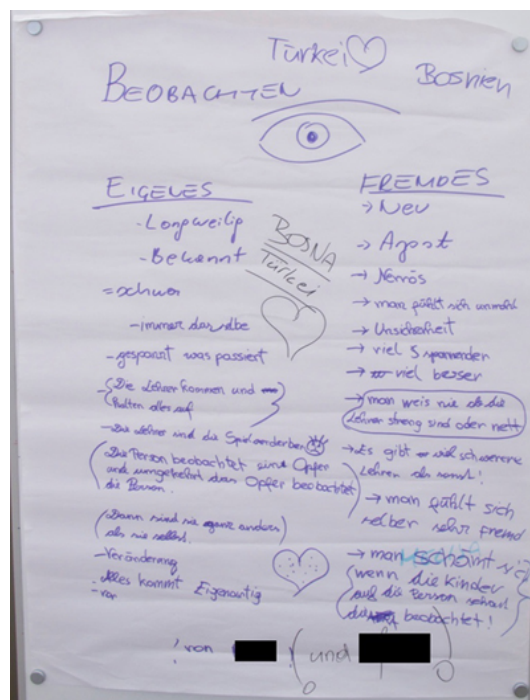 Türkei
Bosnien
BEOBACHTEN
EIGENES
- Langweilig
- Bekannt
= schwer
- immer das selbe
- gespannt was passiert
- (Die Lehrer kommen und
halten alles auf
- Die Lehrer sind die Spielverderber
(Die Person beobachtet sind Opfer
und umgekehrt das Opfer beobachtet
die Person.
(Dann sind sie ganz anders
als sie selbst.
- Veränderung
- Alles kommt Eigenartig
- vor
BOSNA
Türkei
FREMDES
→ Neu
→ Angst
→ Nervös
→ man fühlt sich unwohl
→ Unsicherheit
→ viel spannender
→ viel besser
→ man weis nie ob die
Lehrer streng sind oder nett
→ Es gibt viel schwerere
Lehren als sonst!
→ man fühlt sich
selber sehr fremd
→ man schämt sich
(wenn die Kinder
auf die Person schaut
beobachtet!
! von
(und